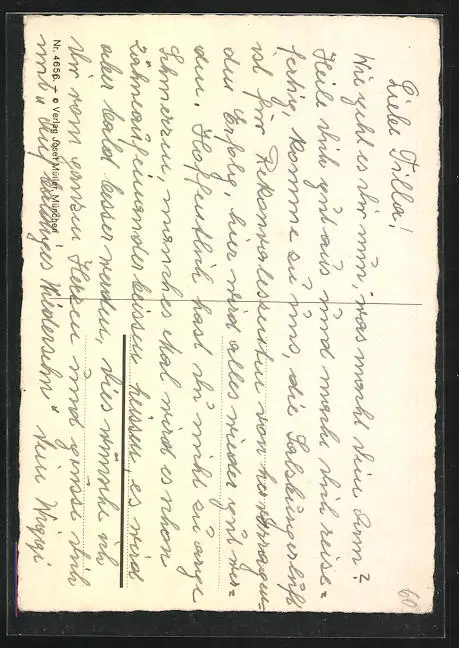 Liebe Tilla!
Wie geht es Dir nun, was macht Dein Arm?
Heile Dich gut aus und mach Dich reise=
fertig, komme zu uns, die Salzburgerluft
ist für Rekonvaleszenten von hervorragen=
den Erfolg, hier wird alles wieder gut wer=
den. Hoffentlich hast Du nicht zu arge
Schmerzen, manches Mal wird es schon
Zähneaufeinanderbeissen heissen, es wird
aber bald besser werden, dies wünsche ich
Dir vom ganzen Herzen und grüsse Dich
und "Auf baldiges Wiedersehn" Dein Wiggi
Nr. 4656 † © Verlag Josef Müller, München
60